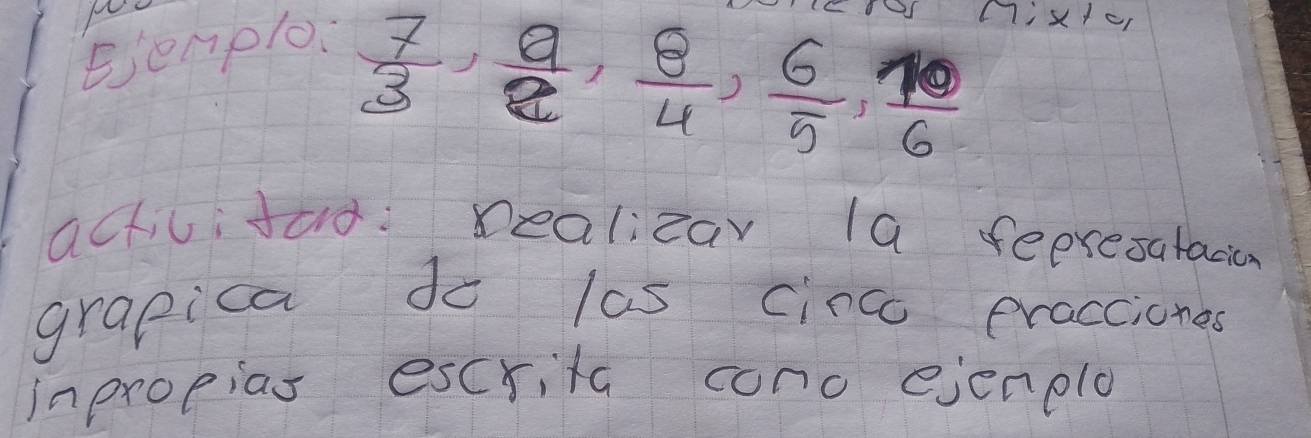 Mixta
Ejemplo: 7/3, 9/2, 8/4, 6/5, 10/6
activitad: realizar la represatacion
grapica de las cinco pracciones
inpropias escrita como ejemplo